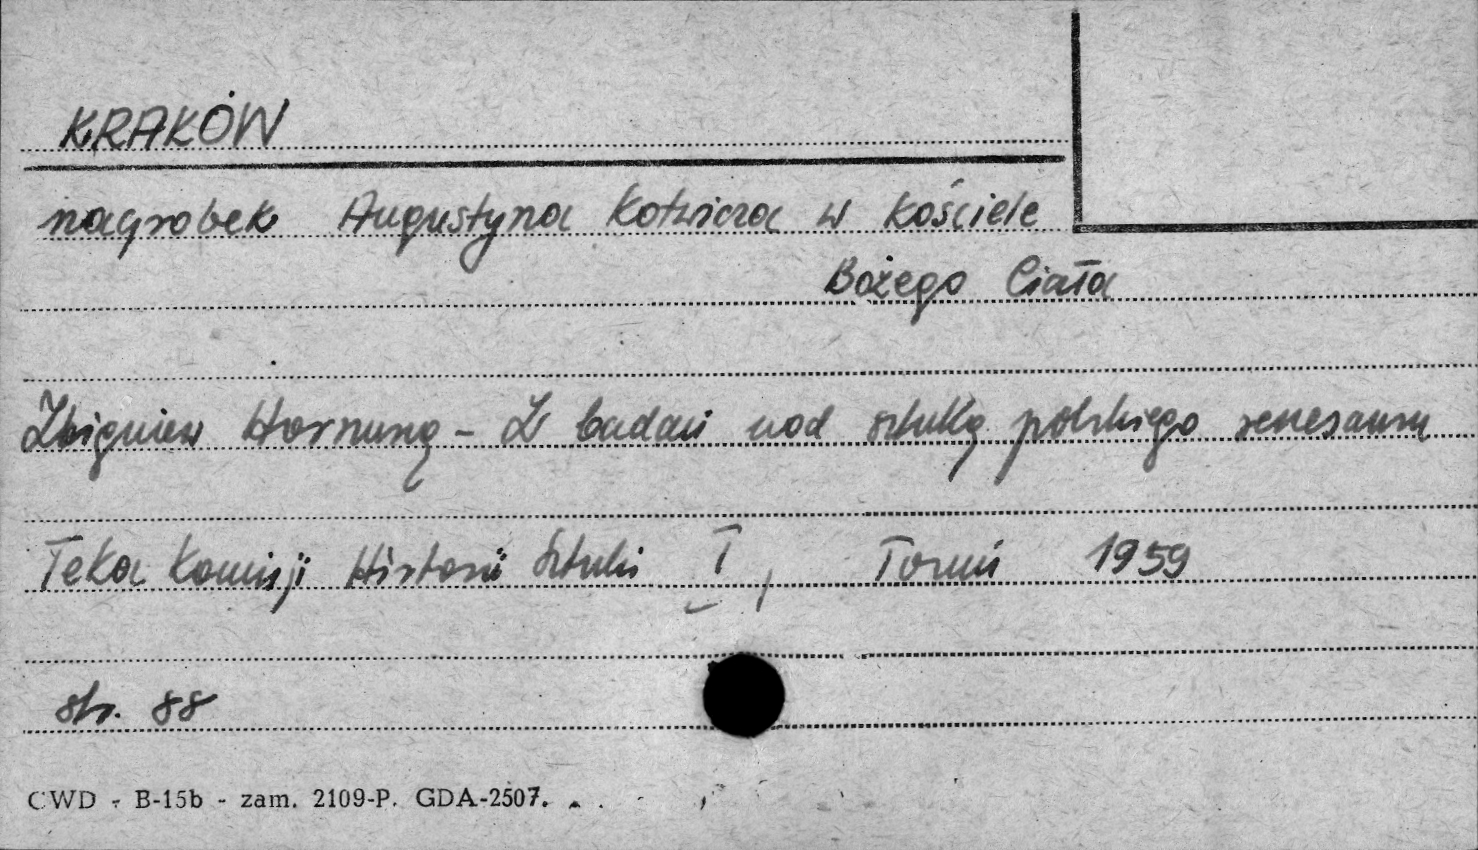 KRAKÓW
nagrobek Augustyna Kotwicza w Kościele
Bożego Ciała
Zbigniew Hornung - Z badań nad sztuką polskiego renesansu
Teka Komisji Historii Sztuki I, Toruń 1959
str. 88
CWD - B-15b - zam. 2109-P. GDA-2507.